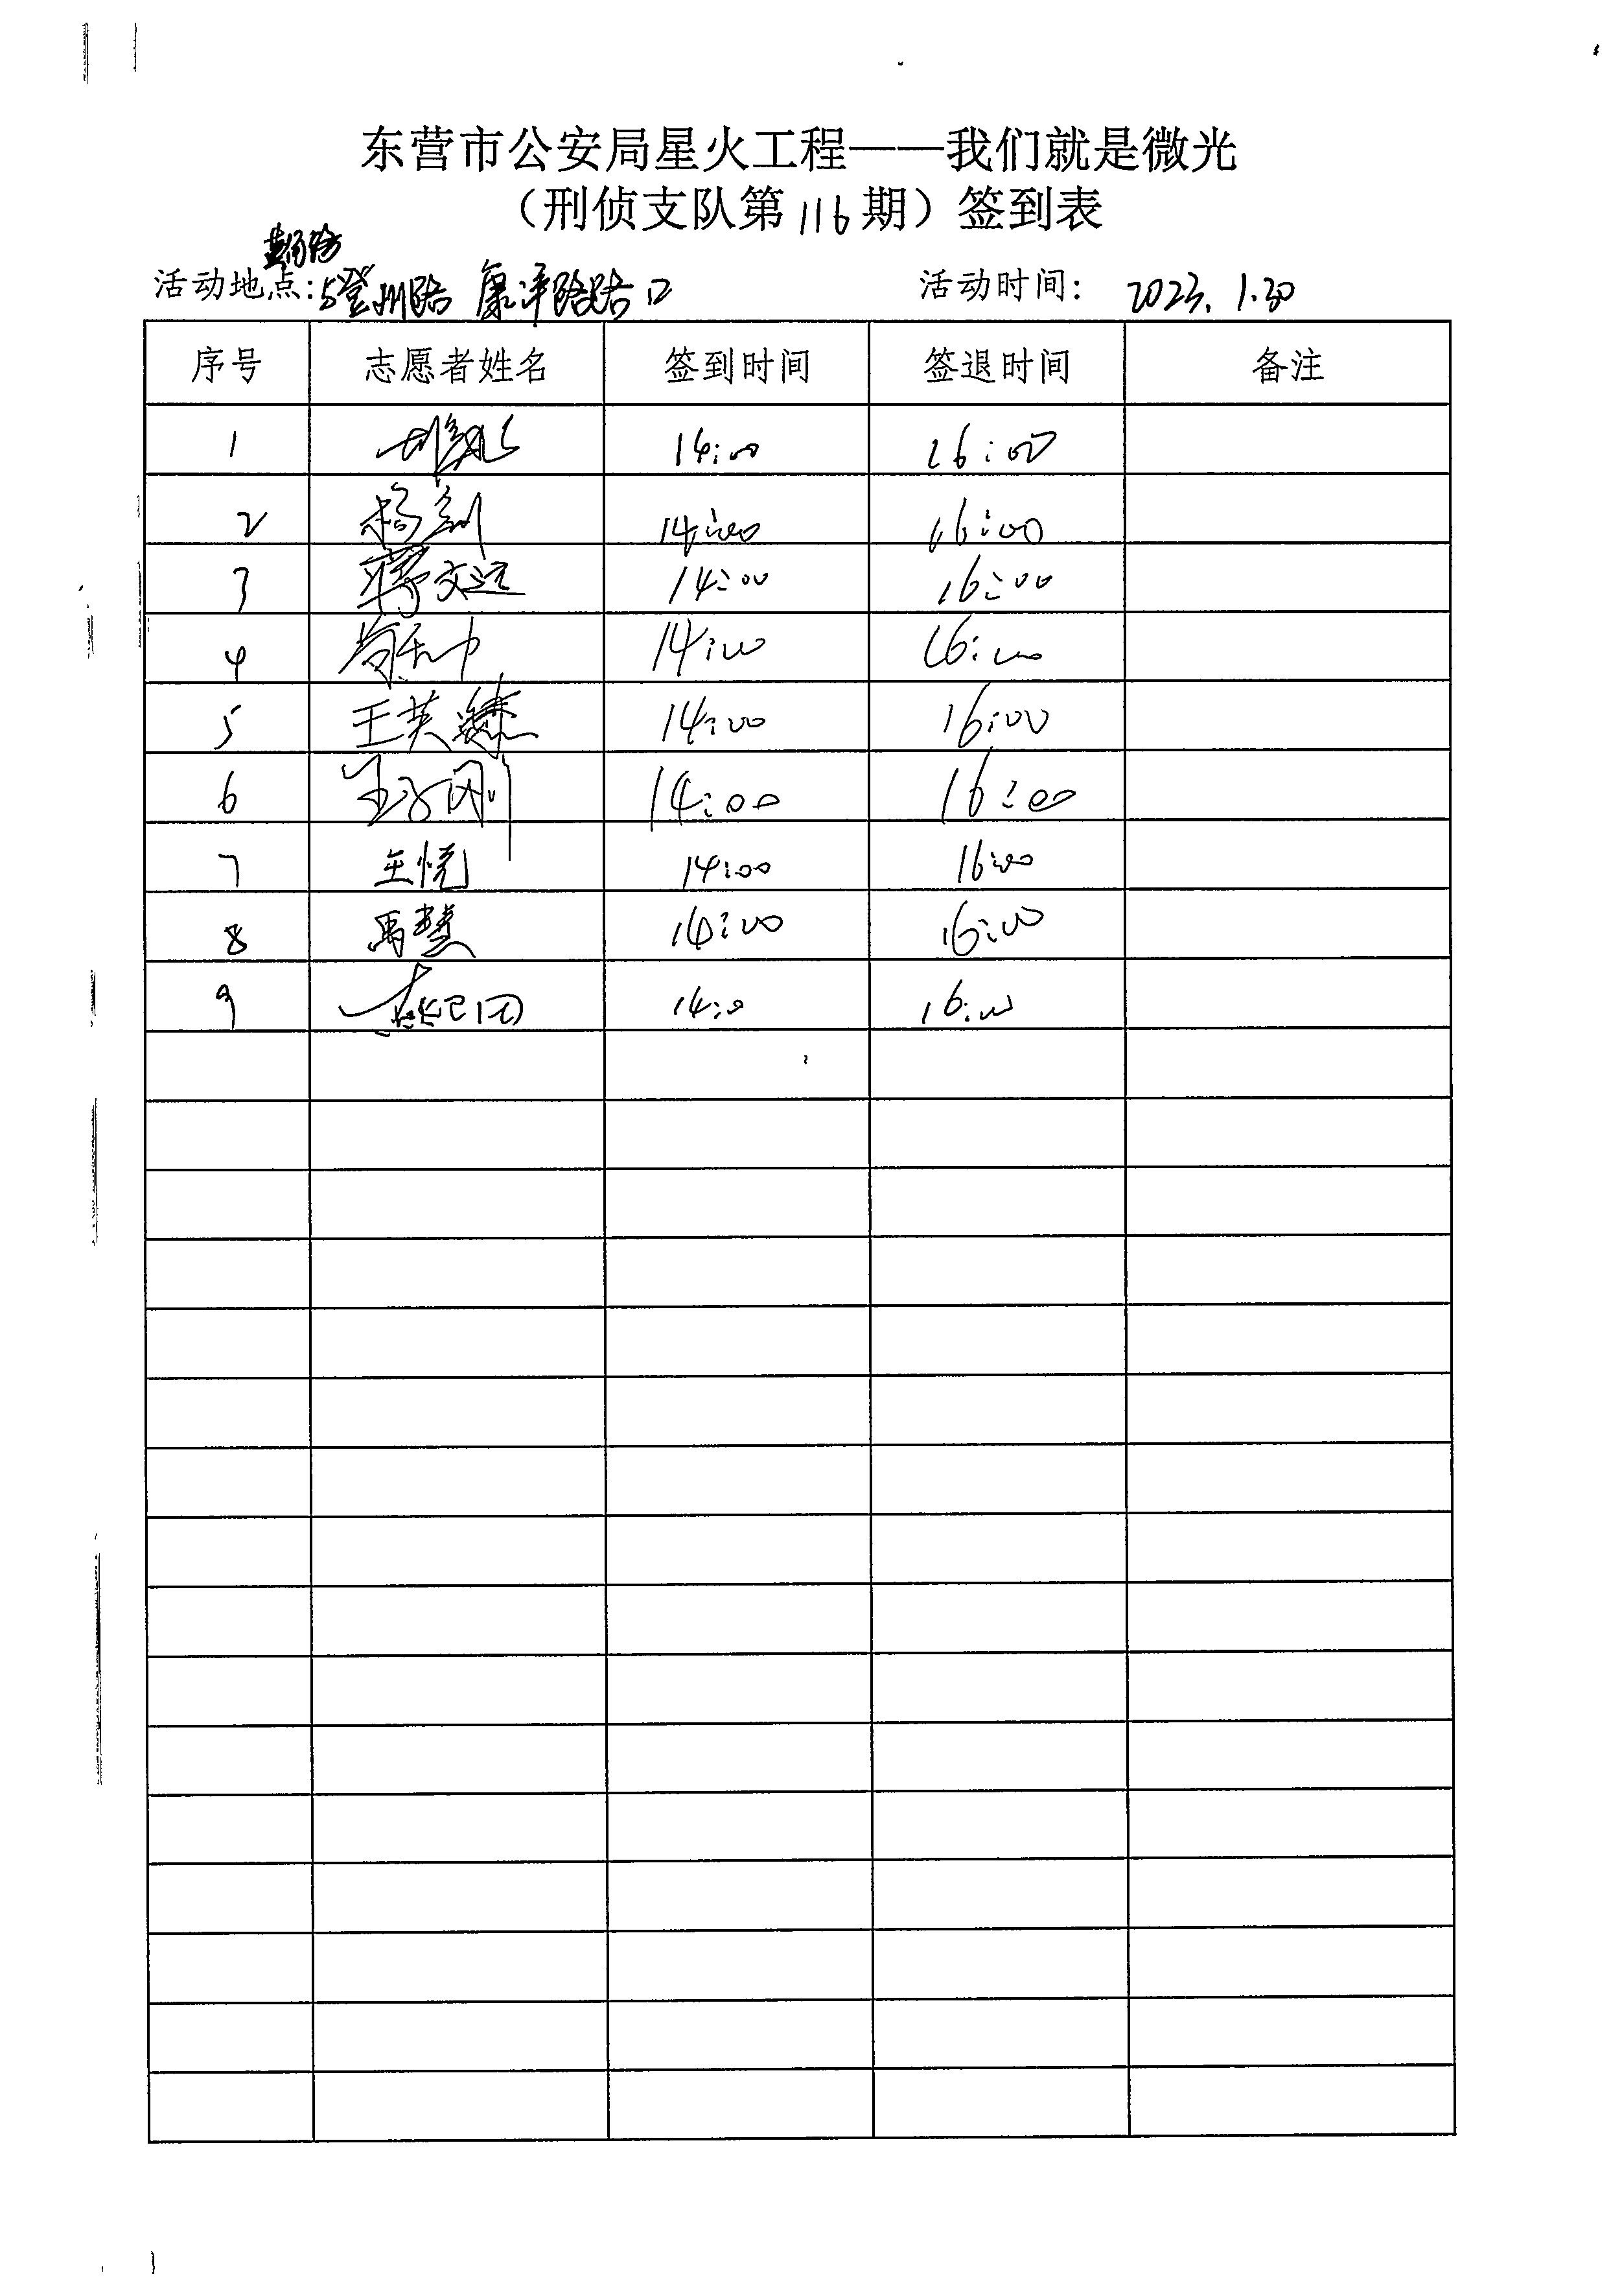 东营市公安局星火工程——我们就是微光
（刑侦支队第116期）签到表
黄河路
活动地点：与登州路 康洋路路口 活动时间：2023.1.30
序号 志愿者姓名 签到时间 签退时间 备注
1 14:00 16:00
2 杨剑 14:00 16:00
3 蒋文远 14:00 16:00
4 14:00 16:00
5 王英 14:00 16:00
6 王子刚 14:00 16:00
7 王悦 14:00 16:00
8 禹慧 14:00 16:00
9 14:0 16:00